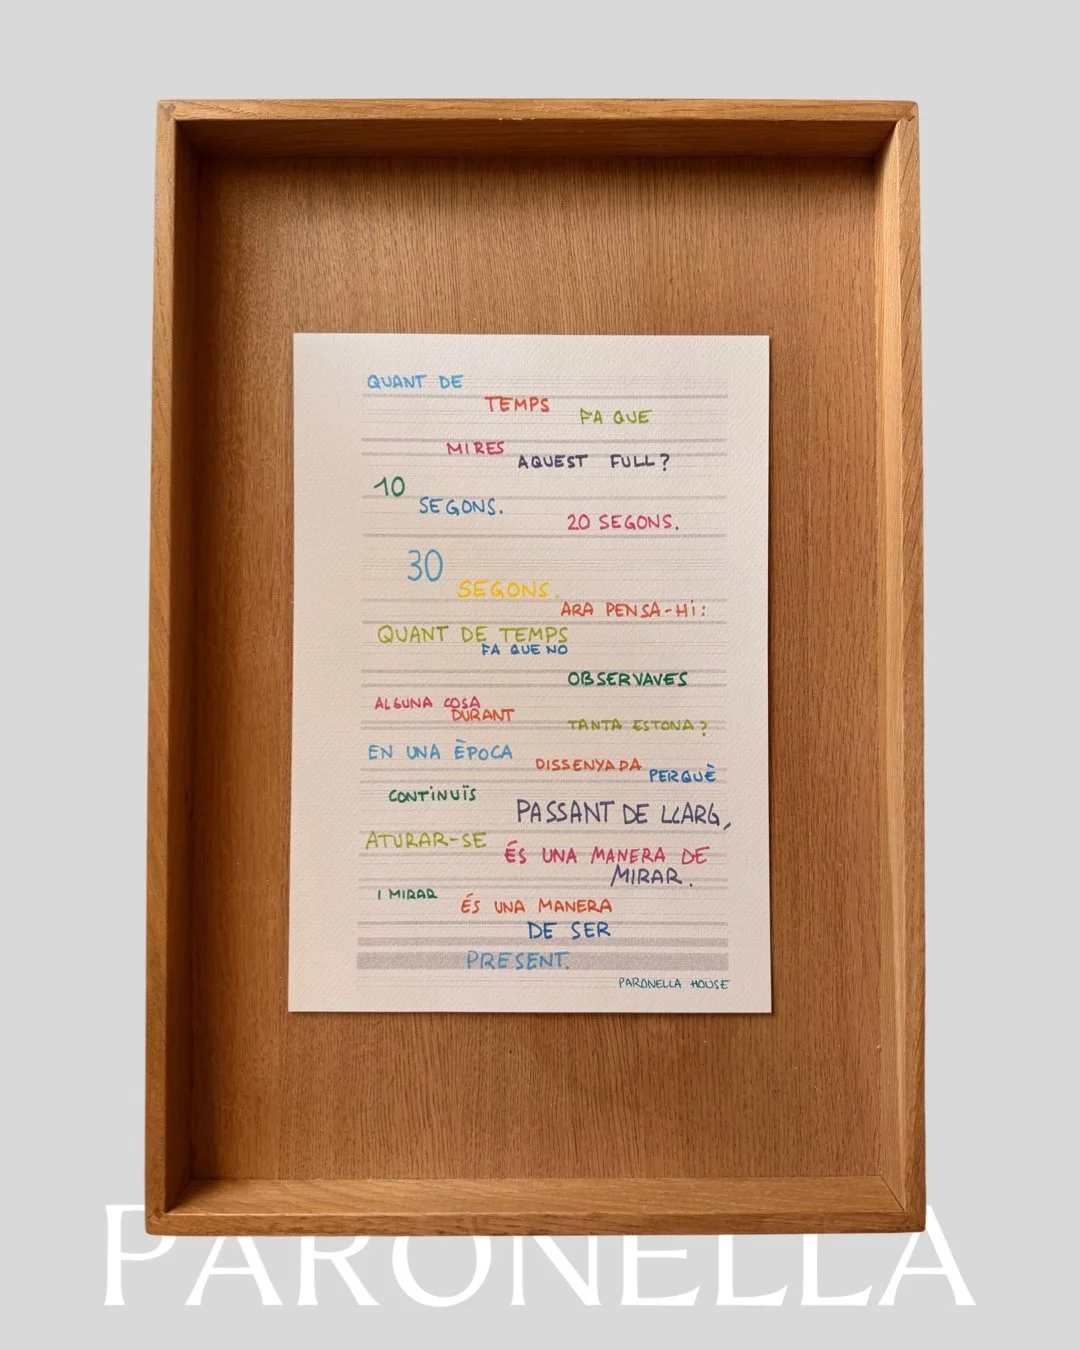 QUANT DE
TEMPS FA QUE
MIRES AQUEST FULL?
10 SEGONS.
20 SEGONS.
30 SEGONS.
ARA PENSA-HI:
QUANT DE TEMPS
FA QUE NO
OBSERVAVES
ALGUNA COSA
DURANT
TANTA ESTONA?
EN UNA ÈPOCA
DISSENYADA PERQUÈ
CONTINUÏS
PASSANT DE LLARG,
ATURAR-SE
ÉS UNA MANERA DE
MIRAR.
I MIRAR
ÉS UNA MANERA
DE SER
PRESENT.
PARONELLA HOUSE
PARONELLA